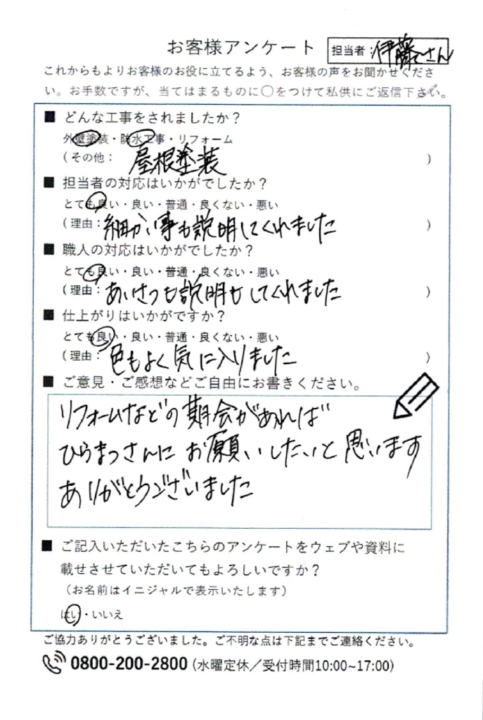 お客様アンケート
担当者:伊藤さん
これからもよりお客様のお役に立てるよう、お客様の声をお聞かせくださ
い。お手数ですが、当てはまるものに〇をつけて私供にご返信下さい。
■ どんな工事をされましたか?
外壁塗装・防水工事・リフォーム
(その他: 屋根塗装 )
■ 担当者の対応はいかがでしたか?
とても良い・良い・普通・良くない・悪い
(理由: 細かい事も説明してくれました )
■ 職人の対応はいかがでしたか?
とても良い・良い・普通・良くない・悪い
(理由: あいさつも説明もしてくれました )
■ 仕上がりはいかがですか?
とても良い・良い・普通・良くない・悪い
(理由: 色もよく気に入りました )
■ ご意見・ご感想などご自由にお書きください。
リフォームなどの期会があれば
ひらまつさんにお願いしたいと思います
ありがとうございました
■ ご記入いただいたこちらのアンケートをウェブや資料に
載せさせていただいてもよろしいですか?
(お名前はイニジャルで表示いたします)
はい・いいえ
ご協力ありがとうございました。ご不明な点は下記までご連絡ください。
0800-200-2800 (水曜定休/受付時間10:00~17:00)